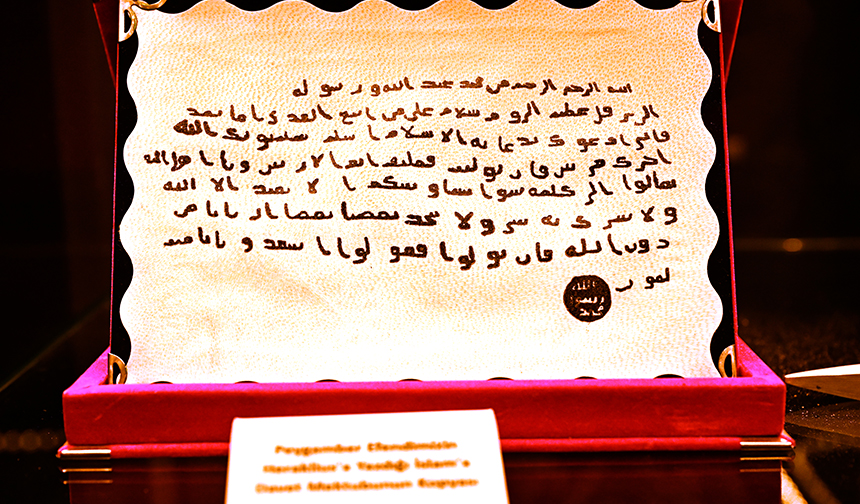 الله الرحمن الرحيم من محمد عبد الله ورسوله
الى هرقل عظيم الروم سلام على من اتبع الهدى اما بعد
فانى ادعوك بدعاية الاسلام اسلم تسلم يوتك الله
اجرك مرتين فان توليت فعليك اثم الاريسين ويا اهل
تعالوا الى كلمة سوا بيننا وبينكم ا لا نعبد الا الله
ولا نشرك به شى ولا يتخذ بعضنا بعضا اربابا من
دون الله فان تولوا فقولوا اشهدو بانا مس
لمون
الله
رسول
محمد
Peygamber Efendimizin
Heraklius'e Yazdığı İslam'a
Davet Mektubunun Kopyası